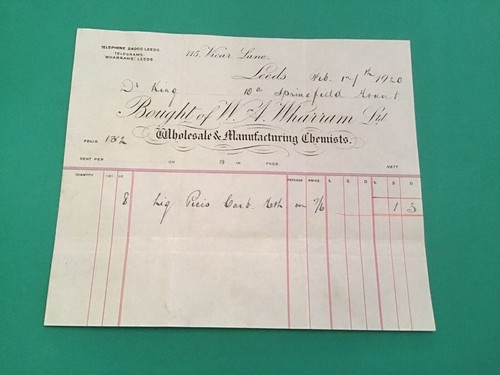 TELEPHONE 24000 LEEDS.
TELEGRAMS:
"WHARRAMS" LEEDS.
115, Vicar Lane,
Leeds Feb. 17th 1920
Dr King
10a Springfield Mount
Bought of W. A. Wharram Ltd
Wholesale & Manufacturing Chemists.
FOLIO 132
SENT PER ON 19 IN PKGE. NETT
QUANTITY LBS. OZ. PACKAGE PRICE £ S D £ S D
8 Liq Picis Carb. Meth 2/6 1 3